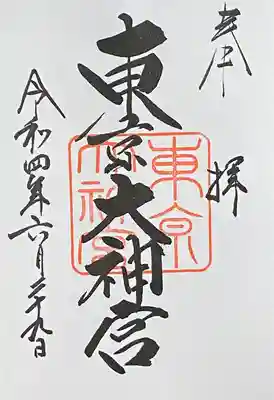 奉拝
東京大神宮
東京
大神宮
令和四年六月二十九日